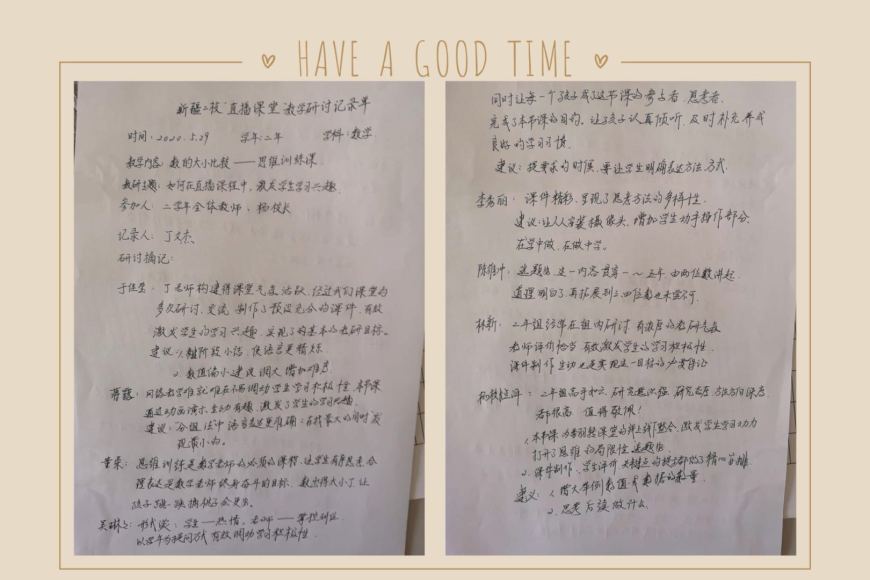 HAVE A GOOD TIME
新疆二校"直播课堂"教学研讨记录单
时间：2020.5.29 学年：二年 学科：数学
教学内容：数的大小比较——思维训练课
教研主题：如何在直播课程中，激发学生学习兴趣
参加人：二学年全体教师、杨校长
记录人：丁文杰
研讨摘记：
丁老师构建得课堂气氛活跃，经过我们课堂内
多次研讨、交流，制作了预设充分的课件，有效
激发学生的学习兴趣，呈现了的基本的教研目标。
建议：1、阶段小结，使语言更精炼
2、数值偏小建议调大增加难度
网络教学难就难在不易调动学生学习积极性，本节课
通过动画演示，生动有趣，激发了学生的学习兴趣
建议：分组法中语言表达更准确：在找最大的同时发
现最小的。
思维训练是数学老师的必须的课程，让学生有序思考合
理表达是数学老师终身奋斗的目标，数出得大小了让
孩子
学生——热情，老师——掌控到位
以学生为提问方式有效调动学习积极性
同时让每一个孩子成了这节课的参与者、思考者，
完成了本节课的目的，让孩子认真倾听，及时补充养成
良好的学习习惯。
建议：提要求的时候，要让学生明确表达方法、方式。
李秀丽：课件精彩，呈现了思考方法的多样性。
建议：让人人安装摄像头，增加学生动手操作部分，
在学中做，在做中学。
选题好，这一内容贯穿一～五年，由两位数讲起，
道理明白了再拓展到三四位数也未尝不可。
林新：二年组经常在组内研讨，有浓厚的教研气氛
老师评价恰当，有效激发学生的学习积极性，
课件制作生动也是实现这一目标的
二年组高手如云，研究意识强，研究态度、方法方向深度
都很高，值得敬佩！
1、本节课为有效激发学生学习动力
打开了思维的局限性
2、课件制作、学生评价、关键点的提示都做了精心安排
建议：1、增大举例数值或数据的数量
2、思考后该做什么